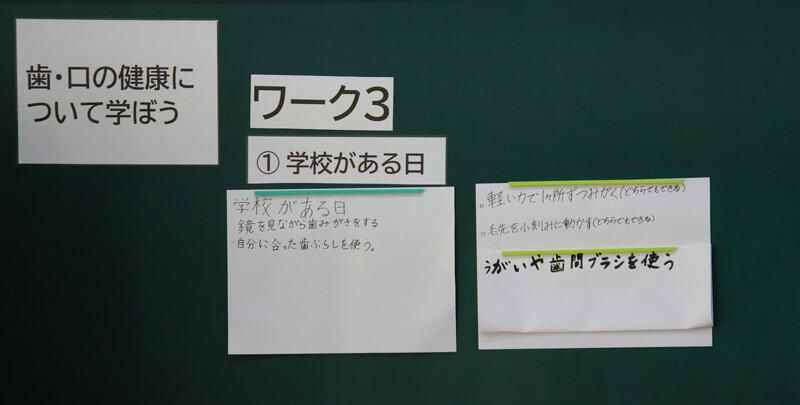 歯・口の健康に
ついて学ぼう
ワーク3
① 学校がある日
学校がある日
・鏡を見ながら歯みがきをする
自分に合った歯ぶらしを使う。
。軽い力で1ヶ所ずつみがく(どちらでもできる)
。毛先を小刻みに動かす(どちらでもできる)
うがいや歯間ブラシを使う